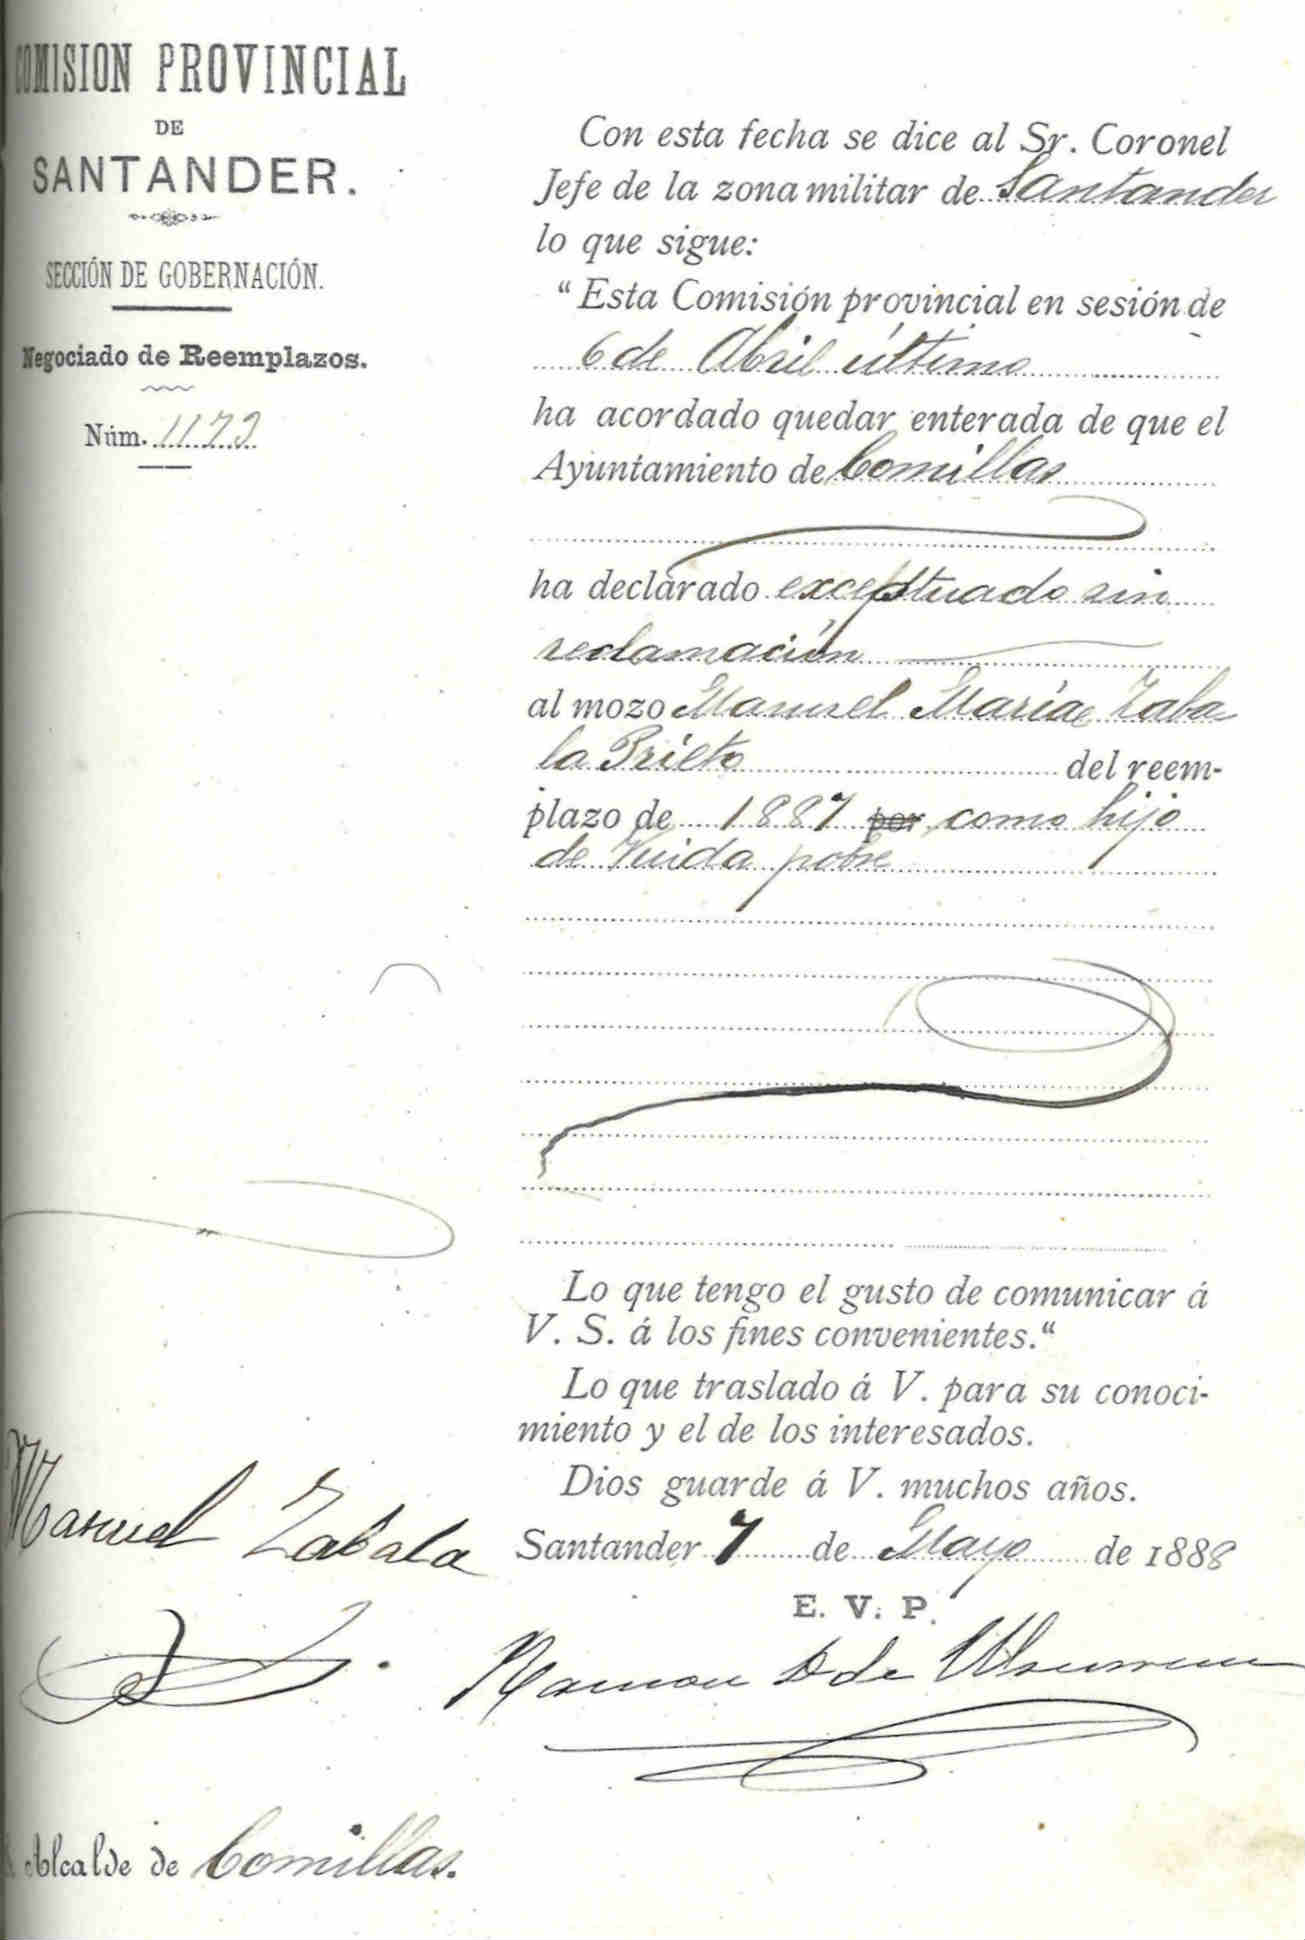 COMISION PROVINCIAL
DE
SANTANDER.
SECCIÓN DE GOBERNACIÓN.
Negociado de Reemplazos.
Núm. 1179
Con esta fecha se dice al Sr. Coronel
Jefe de la zona militar de Santander
lo que sigue:
“Esta Comisión provincial en sesión de
6 de Abril último
ha acordado quedar enterada de que el
Ayuntamiento de Comillas
ha declarado exceptuado sin
reclamación
al mozo Manuel María Zaba
la Prieto del reem-
plazo de 1887 por como hijo
de Viuda pobre
Lo que tengo el gusto de comunicar á
V. S. á los fines convenientes.“
Lo que traslado á V. para su conoci-
miento y el de los interesados.
Dios guarde á V. muchos años.
Santander 7 de Mayo de 1888
E. V. P.
Manuel Zabala
Ramon D de
Alcalde de Comillas.